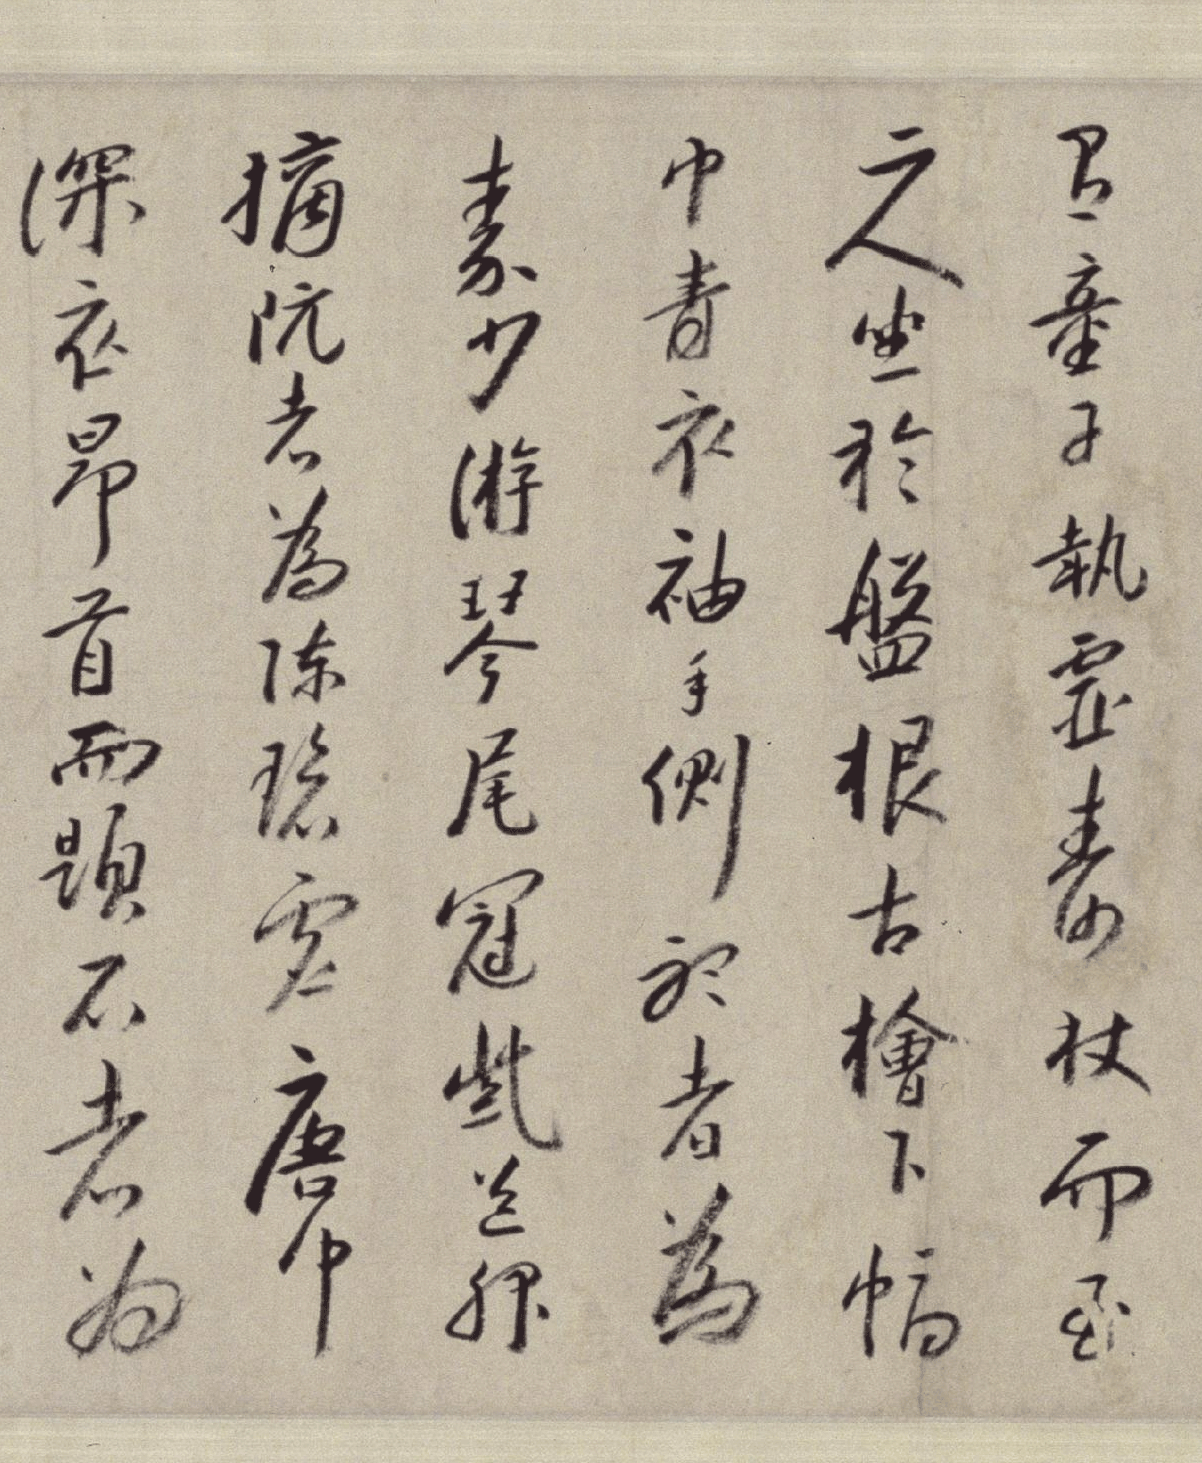 童子執靈壽杖而
二人坐於盤根古檜下幅
巾青衣袖手側聽者為
秦少游琴尾冠紫道服
摘阮者為陳碧虛唐巾
深衣昂首而題石者為